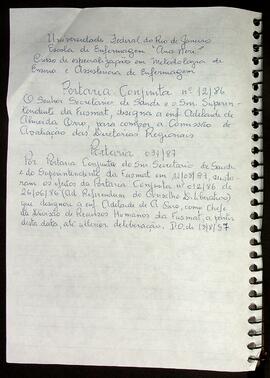 Universidade Federal do Rio de Janeiro
Escola de Enfermagem "Ana Neri"
Curso de especialização em Metodologia de
Ensino e Assistência de Enfermagem
Portaria Conjunta nº 12/86
O Senhor Secretário de Saúde e o Sm. Superin-
tendente da Fusmat, designa a enf. Adelaide de
Almeida Orro, para compor a Comissão de
Avaliação das Diretorias Regionais
Portaria 031/87
Por Portaria Conjunta do Sm. Secretário de Saúde
e do Superintendente da Fusmat em
ram os efeitos da Portaria Conjunta nº 012/86 de
26/06/86 (Ad Referendum do Conselho Deliberativo)
que designou a enf. Adelaide de A. Orro, como Chefe
da Divisão de Recursos Humanos da Fusmat, a partir
desta data, até ulterior deliberação. D.O. de 13/8/87